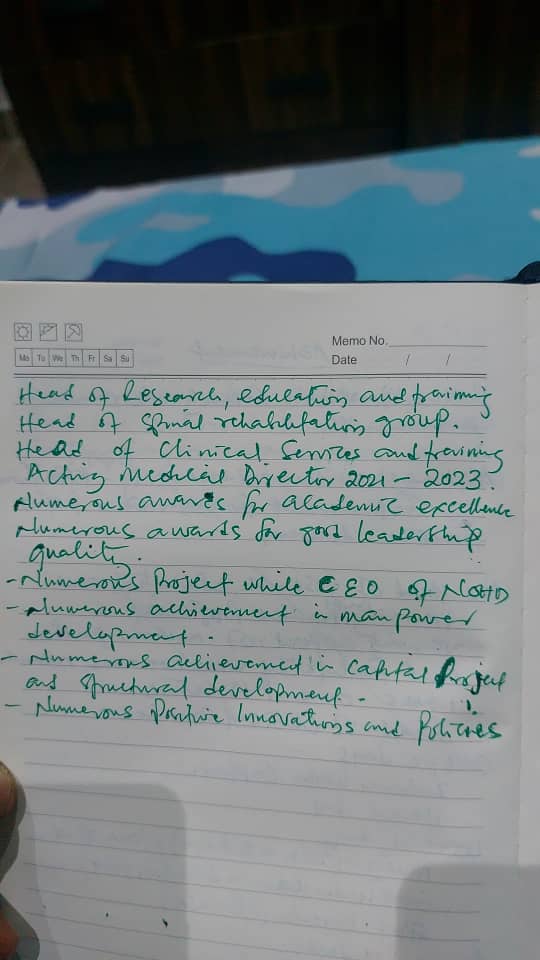 Memo No.
Mo Tu We Th Fr Sa Su
Date / /
Head of Research, education and training
Head of Spinal rehabilitation group.
Head of Clinical Services and training
Acting Medical Director 2021 - 2023.
Numerous awards for academic excellence
Numerous awards for good leadership
quality.
- Numerous Project while CEO of NOHD
- Numerous achievement in man power
development.
- Numerous achievement in capital Project
and structural development.
- Numerous Positive Innovations and Policies